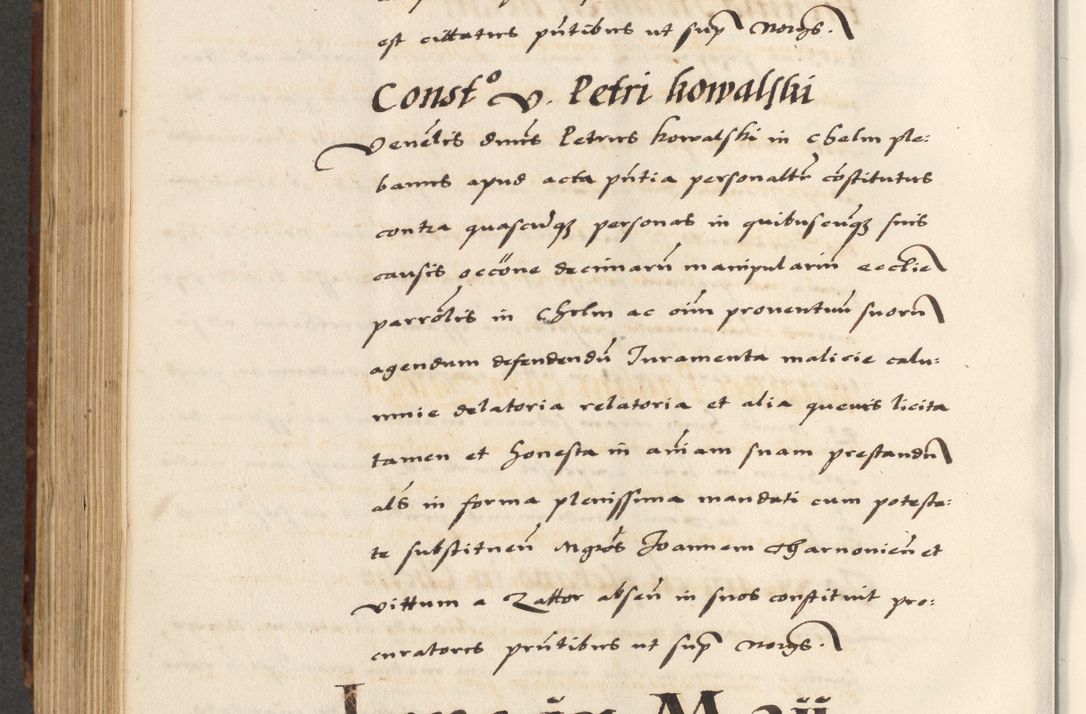 est citatus pñtibus ut supͬ Norijs.
Constº v. Petri kowalski
Venelis dnus Petrus kowalski in Chelm ple:
banus apud acta pñtia personalr cõstitutus
contra quascũqꝫ personas in quibuscũqꝫ suis
causis occõne decimarũ manipulariũ ecclie
parrõlis in Chelm ac oim proventuũ suorũ
agendum defendendũ Iuramenta malicie calu:
mnie delatoria relatoria et alia quevis licita
tamen et honesta in aĩam suam prestandũ
als in forma plenissima mandati cum potesta:
te substituen̄ Mgros Joannem Charnovien̄ et
vittum a Zattor absen̄ in suos constituit pro:
curatores prñtibus ut supͬ Norijs.